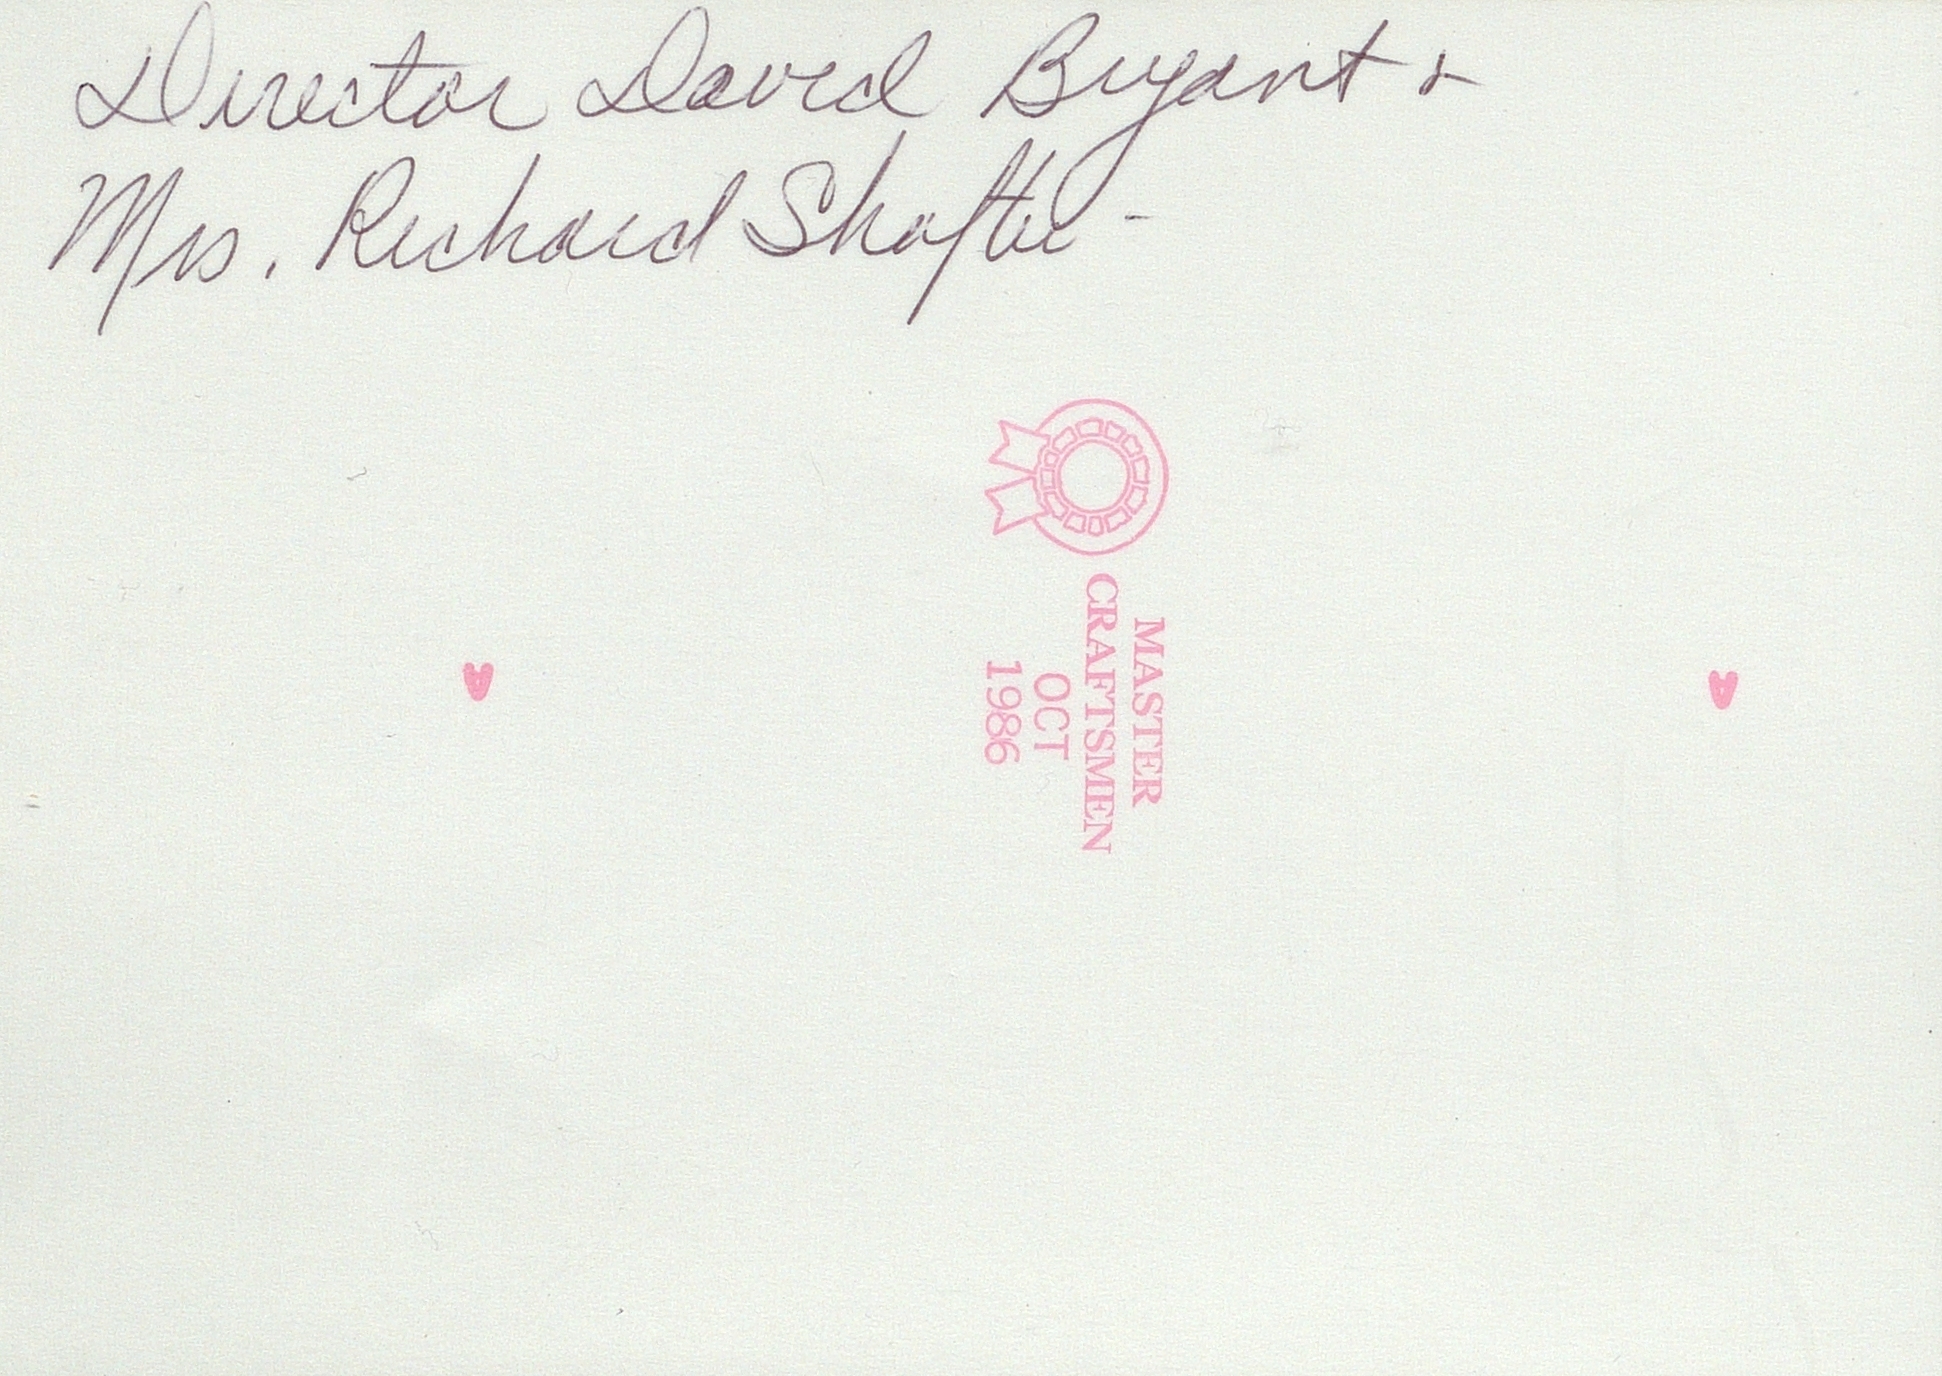 Director David Bryant &
Mrs. Richard Shafter -
MASTER
CRAFTSMEN
OCT
1986